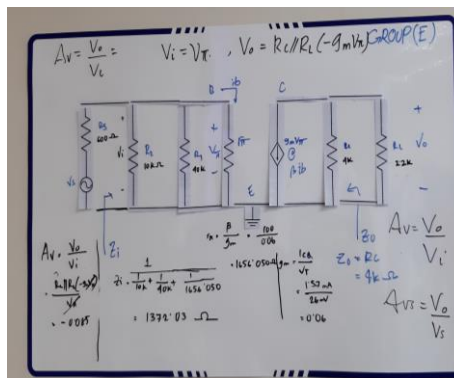 Av = Vo/Vi =
Vi = Vπ. , Vo = Rc//RL(-gmVπ)
GROUP(E)
B
ib
C
Rs
600Ω
Vi
R2
10kΩ
R1
40k
Vπ
rπ
gmVπ
@
βib
Rc
4k
RL
2.2K
Vo
Vs
E
Zi
Zo
Av = Vo/Vi
rπ = β/gm = 100/0.06
= 1656.050Ω
Zi = 1/(1/10k + 1/40k + 1/1656.050)
= 1372.03 Ω
gm = ICQ/VT
26mV
= 0.06
Zo = Rc
= 4k Ω
Av = Vo/Vi
Avs = Vo/Vs